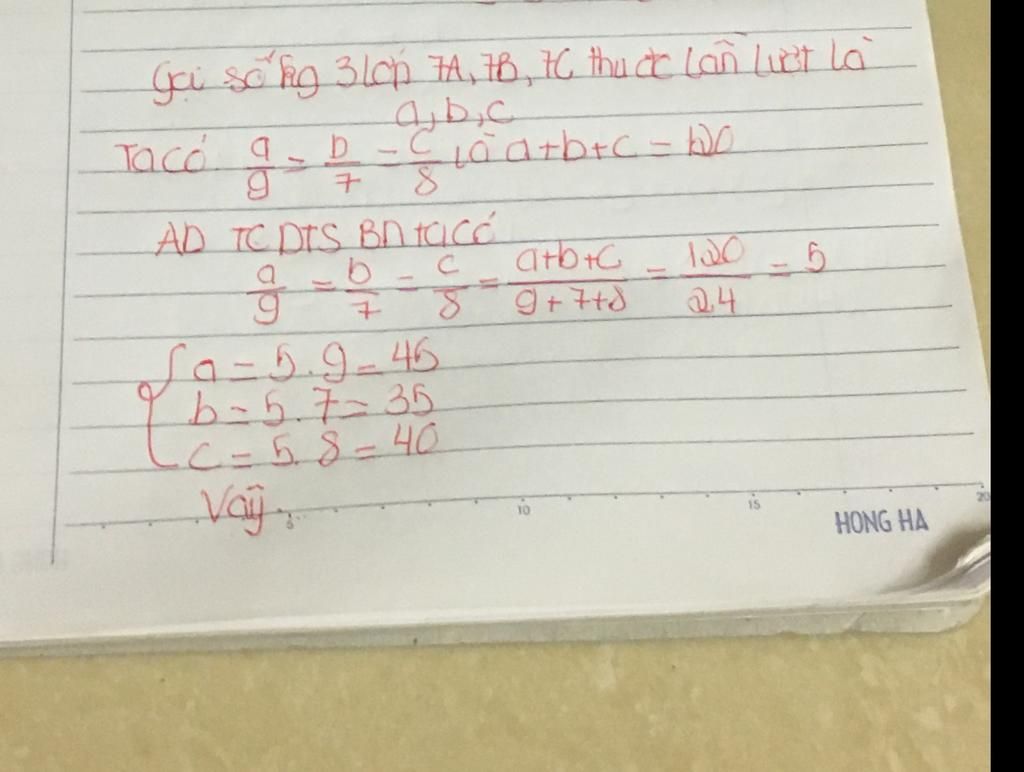 Gọi số hg 3 lớp 7A, 7B, 7C thu đc lần lượt là
a, b, c
Ta có a/9 = b/7 = c/8 và a+b+c = 120
AD TC DTS BN ta có
a/9 = b/7 = c/8 = a+b+c/9+7+8 = 120/24 = 5
{ a = 5.9 = 45
b = 5.7 = 35
c = 5.8 = 40
Vậy.
5 10 15 20
HONG HA